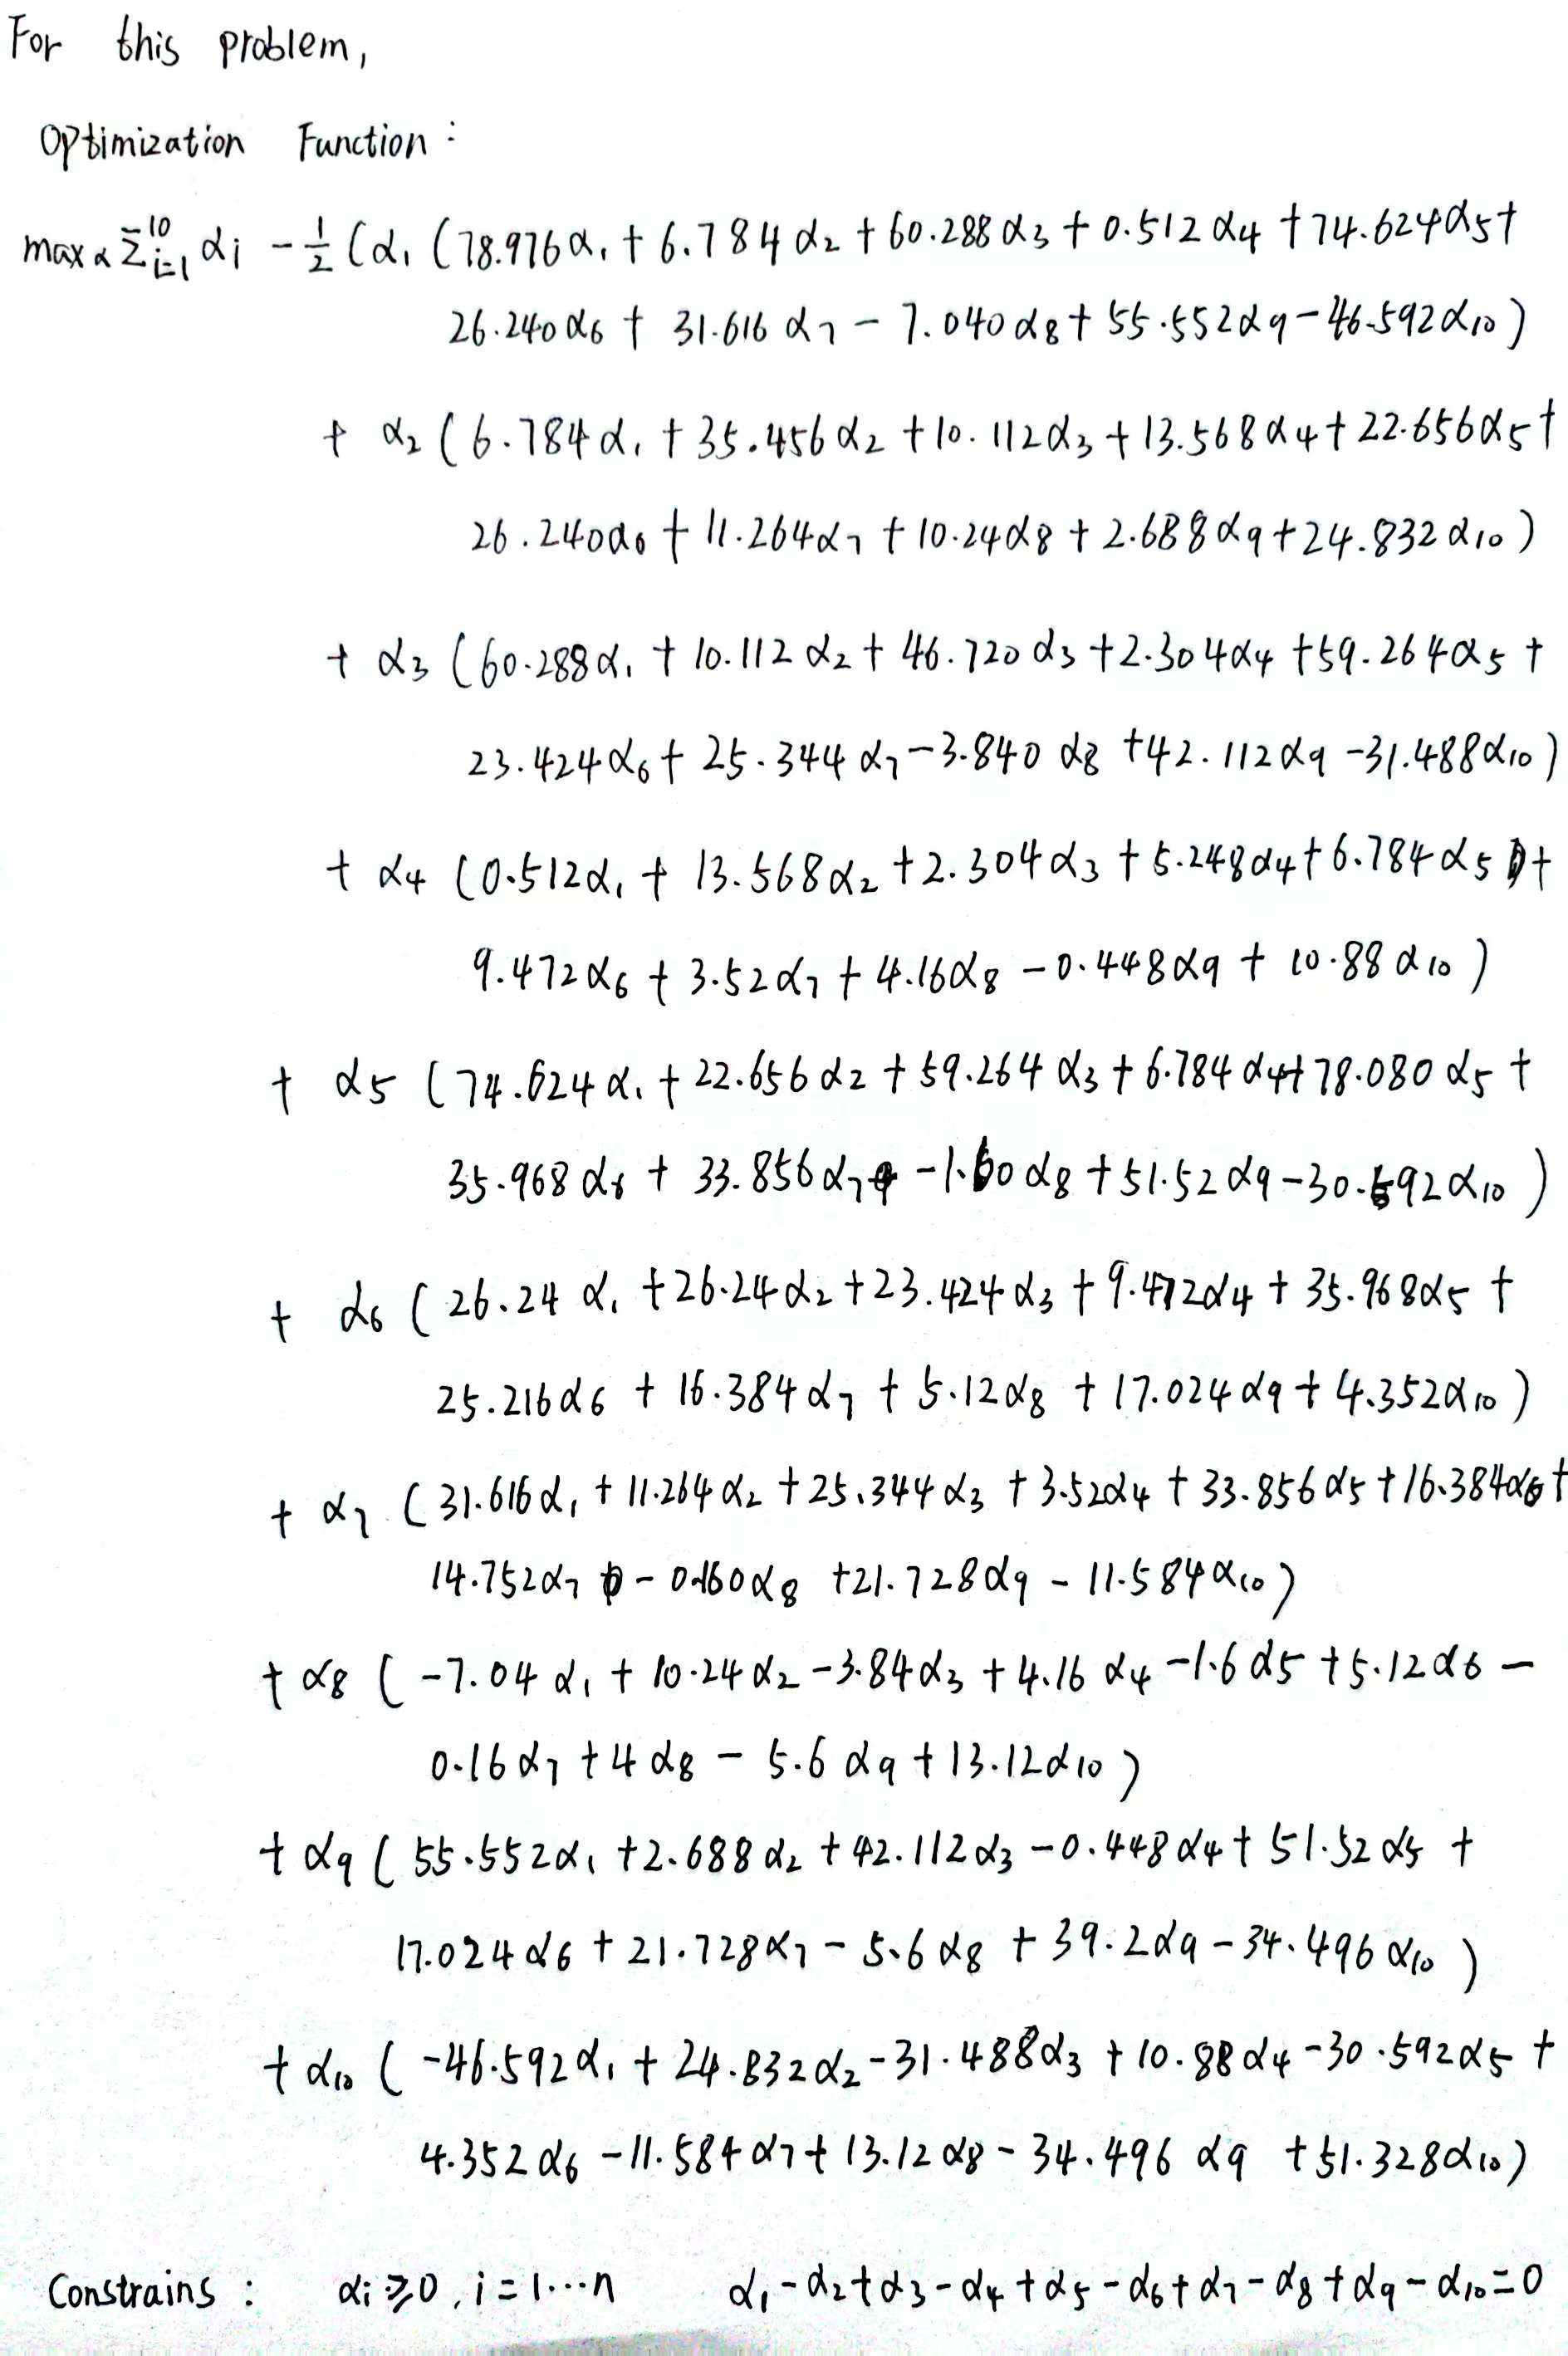 For this problem,
Optimization Function :
max α Σ_{i=1}^{10} αi - 1/2 (α1 (78.976α1 + 6.784α2 + 60.288α3 + 0.512α4 + 74.624α5 +
26.240α6 + 31.616α7 - 7.040α8 + 55.552α9 - 46.592α10)
+ α2 (6.784α1 + 35.456α2 + 10.112α3 + 13.568α4 + 22.656α5 +
26.240α6 + 11.264α7 + 10.24α8 + 2.688α9 + 24.832α10)
+ α3 (60.288α1 + 10.112α2 + 46.720α3 + 2.304α4 + 59.264α5 +
23.424α6 + 25.344α7 - 3.840α8 + 42.112α9 - 31.488α10)
+ α4 (0.512α1 + 13.568α2 + 2.304α3 + 5.248α4 + 6.784α5 +
9.472α6 + 3.52α7 + 4.16α8 - 0.448α9 + 10.88α10)
+ α5 (74.624α1 + 22.656α2 + 59.264α3 + 6.784α4 + 78.080α5 +
35.968α6 + 33.856α7 - 1.60α8 + 51.52α9 - 30.592α10)
+ α6 (26.24α1 + 26.24α2 + 23.424α3 + 9.472α4 + 35.968α5 +
25.216α6 + 16.384α7 + 5.12α8 + 17.024α9 + 4.352α10)
+ α7 (31.616α1 + 11.264α2 + 25.344α3 + 3.52α4 + 33.856α5 + 16.384α6 +
14.752α7 - 0.160α8 + 21.728α9 - 11.584α10)
+ α8 (-7.04α1 + 10.24α2 - 3.84α3 + 4.16α4 - 1.6α5 + 5.12α6 -
0.16α7 + 4α8 - 5.6α9 + 13.12α10)
+ α9 (55.552α1 + 2.688α2 + 42.112α3 - 0.448α4 + 51.52α5 +
17.024α6 + 21.728α7 - 5.6α8 + 39.2α9 - 34.496α10)
+ α10 (-46.592α1 + 24.832α2 - 31.488α3 + 10.88α4 - 30.592α5 +
4.352α6 - 11.584α7 + 13.12α8 - 34.496α9 + 51.328α10)
Constrains : αi ≥ 0, i = 1···n α1 - α2 + α3 - α4 + α5 - α6 + α7 - α8 + α9 - α10 = 0